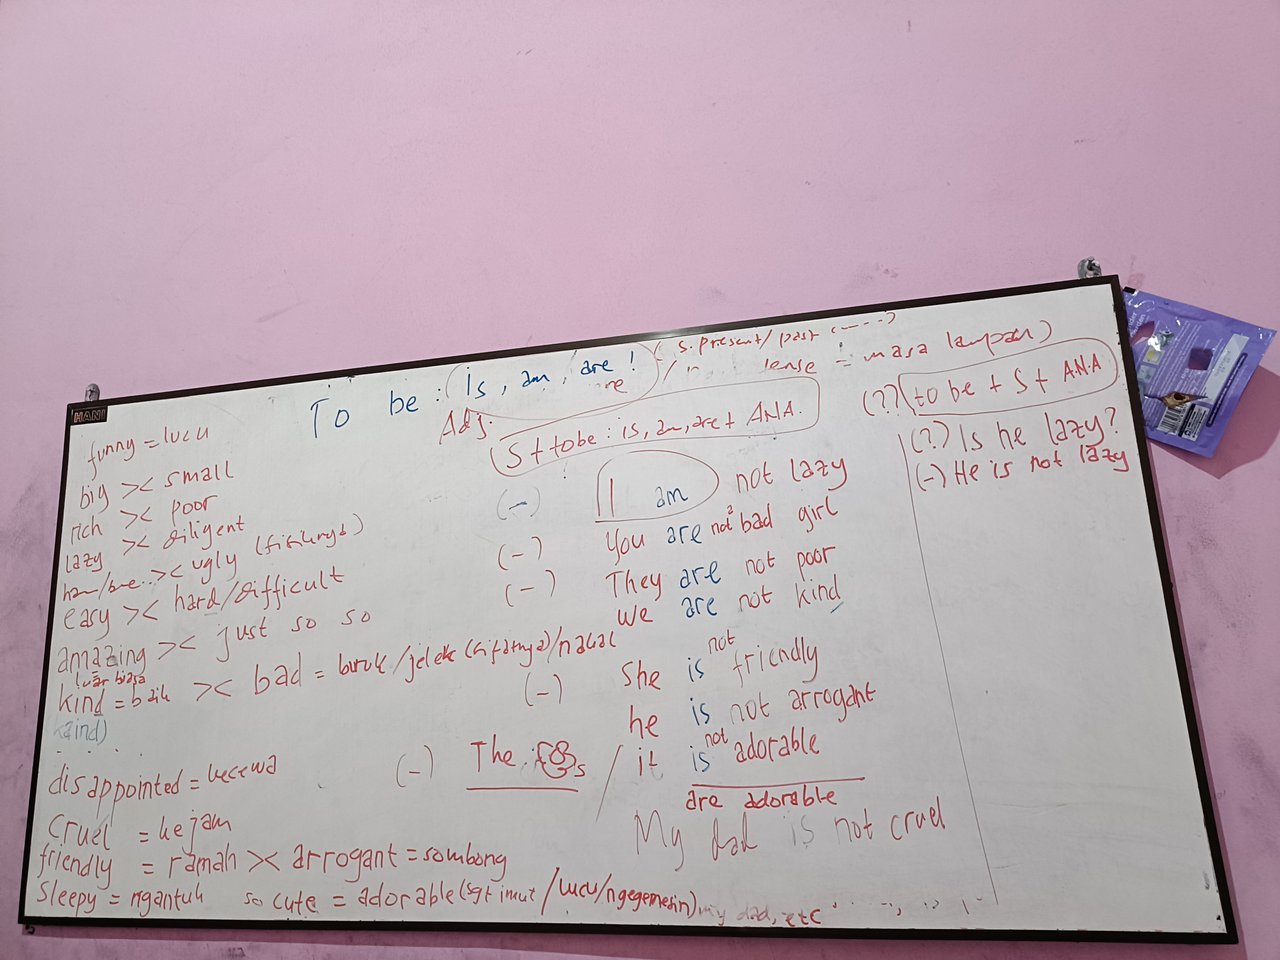 HANI
To be : is, am, are ! ( S. present/ past
lense = masa lampau)
Adj.
S + tobe : is, am, are + ANA.
funny = lucu
big >< small
rich >< poor
lazy >< diligent
>< ugly (fisiknya)
easy >< hard/difficult
amazing >< just so so
luar biasa
kind = baik >< bad = buruk/jelek (sifatnya)/nakal
kaind)
disappointed = kecewa
cruel = kejam
friendly = ramah >< arrogant = sombong
sleepy = ngantuk so cute = adorable (sgt imut /lucu/ngegemesin) my dad, etc
(-) I am not lazy
(-) You are not bad girl
(-) They are not poor
we are not kind
(-) She is not friendly
he is not arrogant
(-) The s / it is not adorable
are adorable
My dad is not cruel
(??) to be + S + ANA
(?) Is he lazy?
(-) He is not lazy